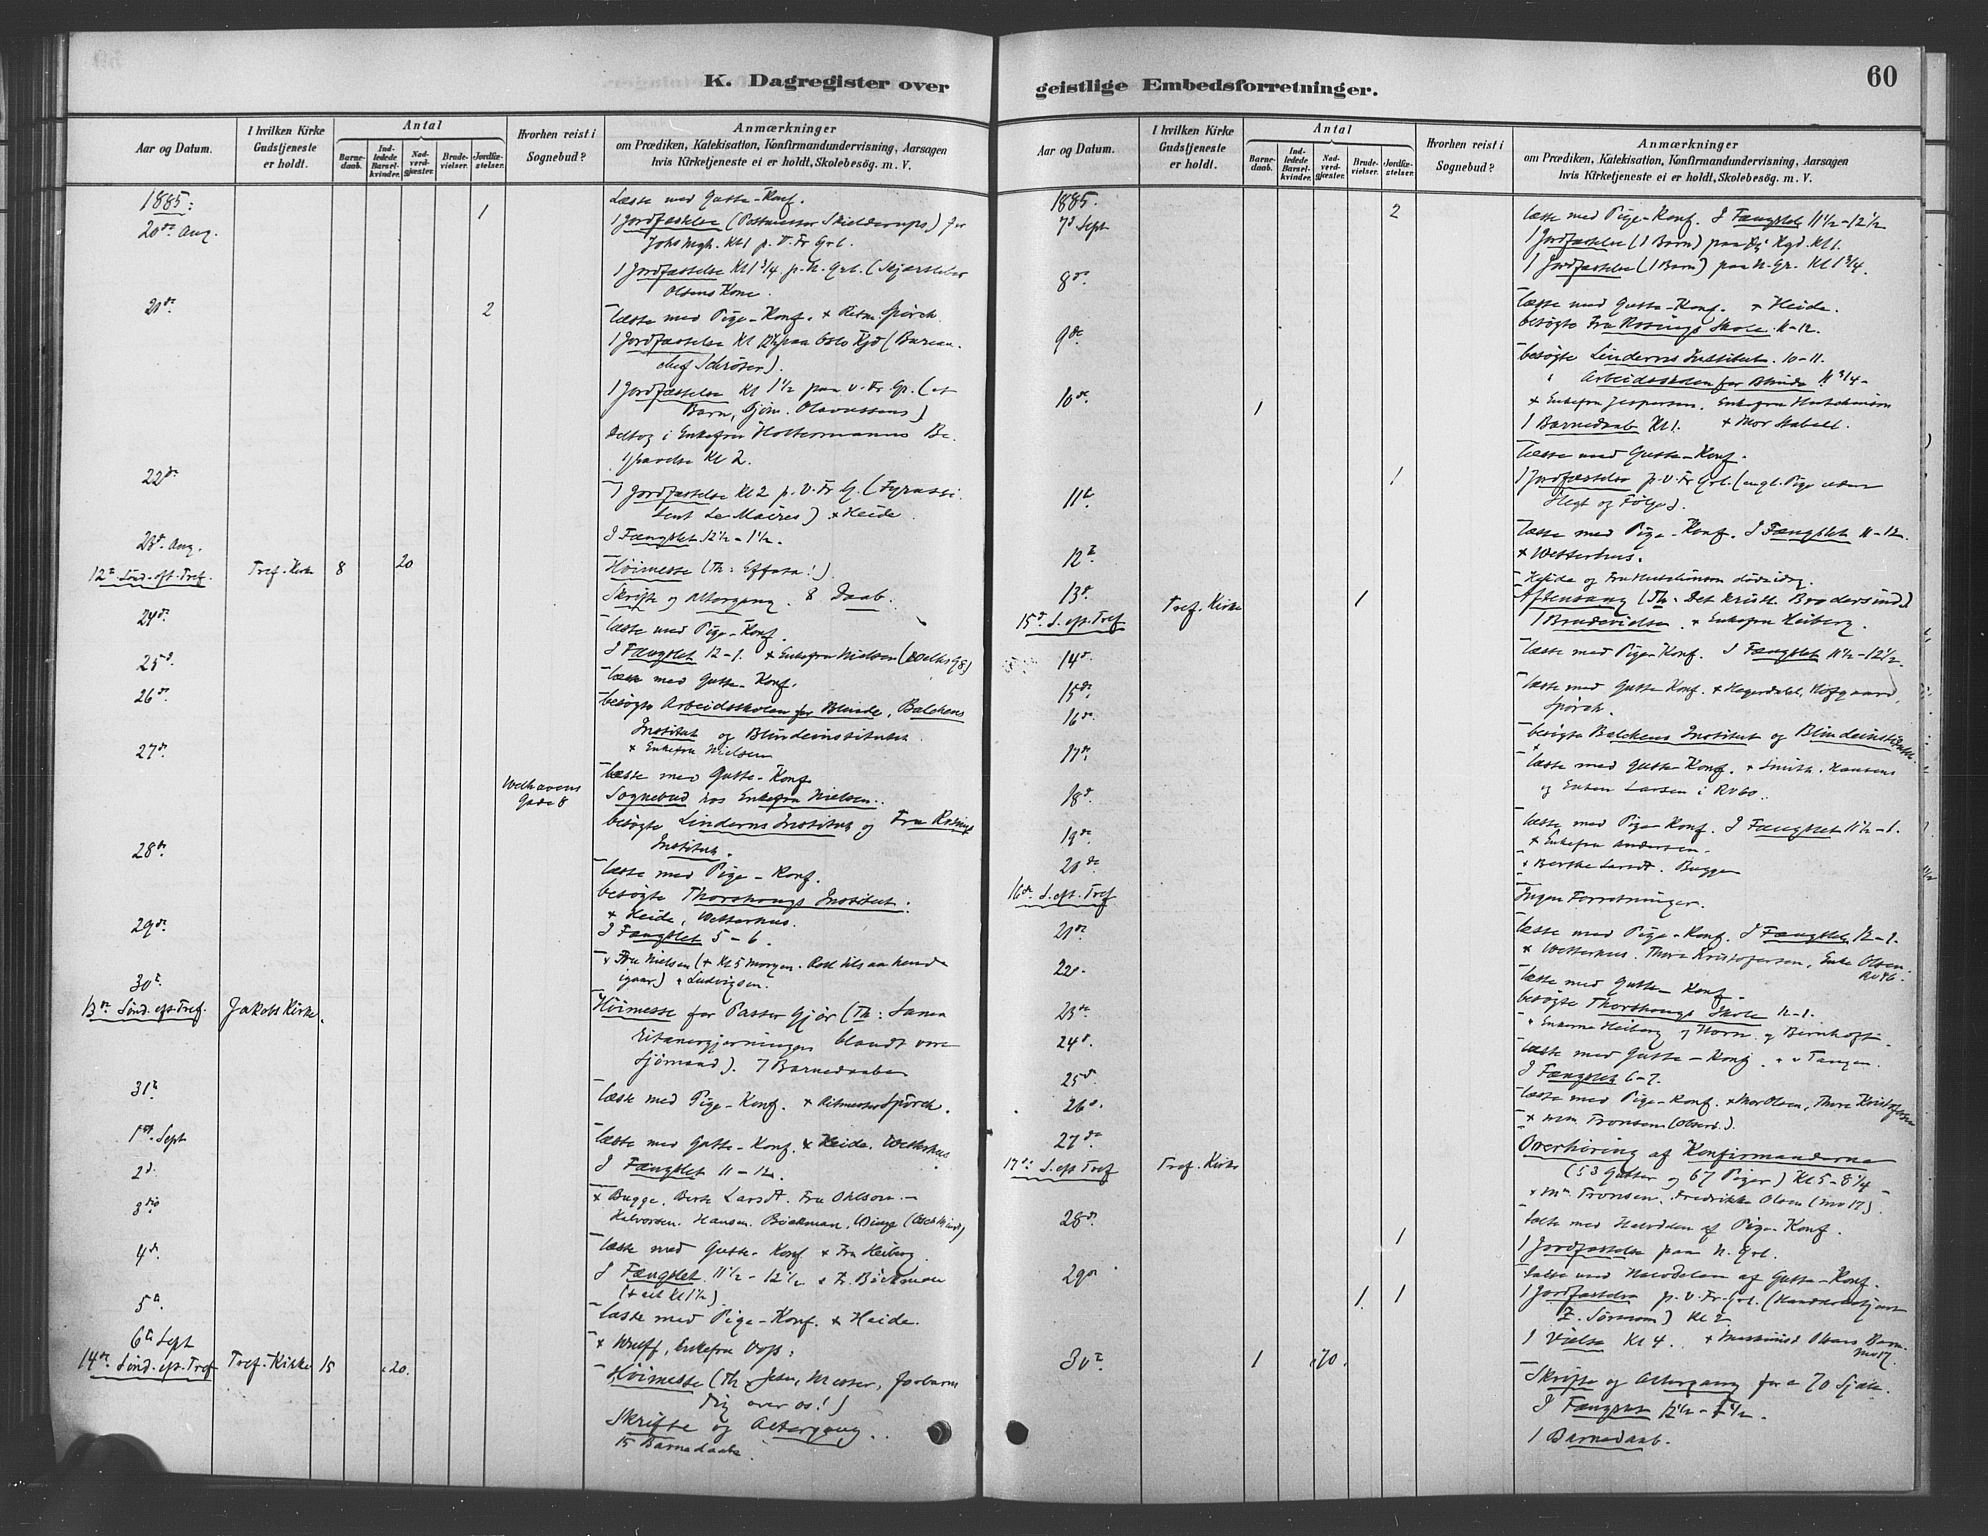 K. Dagregister over
Aar og Datum.
I hvilken Kirke Gudstjeneste er holdt.
Antal
Barnedaab.
Indledede Barselkvinder.
Nadverdgjæster.
Brudevielser.
Jordfæstelser.
Hvorhen reist i Sognebud?
Anmærkninger
om Prædiken, Katekisation, Konfirmandundervisning, Aarsagen
hvis Kirketjeneste ei er holdt, Skolebesøg. m. V.
1885:
læste med Gutte-Konf.
20de Aug. 1
1 Jordfæstelse (Postmester Skielderups) for
Johs Mgh. Kl 1 p. V. Fr Grl.
1 Jordfæstelse Kl 1 3/4 p. N. Grl. (Skjærsleber
Olsens Kone.
21de 2
læste med Pige-Konf. + Ritm. Spørck
1 Jordfæstelse Kl 12½ paa Oslo Kgd (Bureau-
chef Schrøter).
1 Jordfæstelse Kl 1½ paa V. Fr. Gr. (et
Barn, Gjøm. Olavussens)
Deltog i Enkefru Holtermanns Be-
gravelse Kl 2.
22de
1 Jordfæstelse Kl 2 p. V. Fr G. (Fyrassi-
stent le Maires) + Heide.
I Fængslet 12½-1½.
23de Aug.
12te Sønd. eft. Tref. Tref. Kirke 8 20
Høimesse (Th: Effata!)
Skrifte og Altergang. 8 Daab.
24de
læste med Pige-Konf.
I Fængslet 12-1. + Enkefru Nielsen (Welhs G 8)
25de
læste med Gutte-Konf.
26de
besøgte Arbeidsskolen for Blinde, Balchens
Institut og Blindeinstitutet.
+ Enkefru Nielsen
27de
læste med Gutte-Konf
Welhavens Gade 8
Sognebud hos Enkefru Nielsen.
besøgte Linderns Institut og Fru Rosings
Institut.
28de
læste med Pige-Konf.
besøgte Thorshaugs Institut.
+ Heide, Wetterhus.
29de
I Fængslet 5-6.
+ Fru Nielsen (+ Kl 5 Morgen.
igaar) + Ludvigsen.
30te
13de Sønd. eft. Tref. Jakobs Kirke.
Høimesse for Pastor Gjør (Th: Sama-
ritanergjerningen blandt vore
Sjømænd). 7 Barnedaabe
31te
læste med Pige-Konf. + Ritmester Spørck.
1ste Sept
læste med Gutte-Konf. + Heide. Wetterhus
2de
I Fængslet 11-12.
3die
+ Bugge. Berte Larsdt. Fru Ohlson.
Halvorsen. Hansen. Bøckman.
4de
læste med Gutte-Konf + Fru Heiberg.
I Fængslet 11½-12½ + Fr. Bøckman
5te
læste med Pige-Konf. + Heide.
6te Sept
+ Wulff, Enkefru Vogt:
14de Sønd. eft. Tref Tref. Kirke 15 20.
Høimesse (Th. Jesu, Mester, forbarm
Dig over os!)
Skrifte og Altergang.
15 Barnedaabe
geistlige Embedsforretninger.
60
Aar og Datum.
I hvilken Kirke Gudstjeneste er holdt.
Antal
Barnedaab.
Indledede Barselkvinder.
Nadverdgjæster.
Brudevielser.
Jordfæstelser.
Hvorhen reist i Sognebud?
Anmærkninger
om Prædiken, Katekisation, Konfirmandundervisning, Aarsagen
hvis Kirketjeneste ei er holdt, Skolebesøg. m. V.
1885.
7de Sept 2
læste med Pige-Konf. I Fængslet 11½-12½
1 Jordfæstelse (1 Barn) paa Kgd. Kl 1.
1 Jordfæstelse (1 Barn) paa N. Gr. Kl 1 3/4.
8de
læste med Gutte-Konf. + Heide.
besøgte Fru Rosings Skole 11-12.
9de
besøgte Linderns Institut. 10-11.
" Arbeidsskolen for Blinde 11 3/4-
10de 1
+ Enkefru Jespersen. Enkefru Hutchinson
1 Barnedaab Kl 1. + Mor Stabell.
læste med Gutte-Konf.
11te 1
1 Jordfæstelse p. V. Fr. Grl. (engl. Pige uden
Slegt og Følge).
læste med Pige-Konf. I Fængslet 11-12.
12te
+ Wetterhus.
Heide og Fru Hutchinson
13de
15de S. eft. Tref Tref. Kirke 1
Aftensang (Th. Det kristl. Brodersind)
1 Brudevielse. + Enkefru Heiberg.
14de
læste med Pige-Konf. I Fængslet 11½-12½.
15de
læste med Gutte Konf. + Hegerdahl, Hofgaard,
Spørck.
16de
besøgte Balchens Institut og Blindeinstitutet
17de
læste med Gutte-Konf. + Smith. Hansens
og Enken Larsen i Rv 60.
18de
læste med Pige Konf. I Fængslet 11½-1.
19de
+ Enkefru Andersen.
20de
+ Berthe Larsdt. Bugge
16de S. eft. Tref
Ingen Forretninger.
21de
læste med Pige-Konf. I Fængslet 12-1.
+ Wetterhus. Thora Kristofersen, Enke Olsen.
Rv 46.
22de
læste med Gutte-Konf.
besøgte Thorshaugs Skole 12-1.
23de
+ Enkerne Heiberg og Horn og Bernhoft.
24de
læste med Gutte-Konf. + Tangen.
25de
I Fængslet 6-7.
26de
læste med Pige-Konf. + Mor Olsen, Thora Kristofersen
+ Mm. Tronsen
27de
17de S. eft Tref Tref. Kirke
Overhøring af Konfirmanderne
(53 Gutter og 67 Piger) Kl 5-8¼
+ Mm. Tronsen. Fredrikke Olsen
28de 1
læste med Halvdelen af Pige-Konf.
1 Jordfæstelse paa N. Grl.
29de 1 1
læste med Halvdelen af Gutte-Konf.
1 Jordfæstelse p. V. Fr. Grl.
Kl 2
1 Vielse Kl 4.
30te 1 70.
Skrifte og Altergang for c 70 Sjæle.
I Fængslet 12½-1½.
1 Barnedaab.